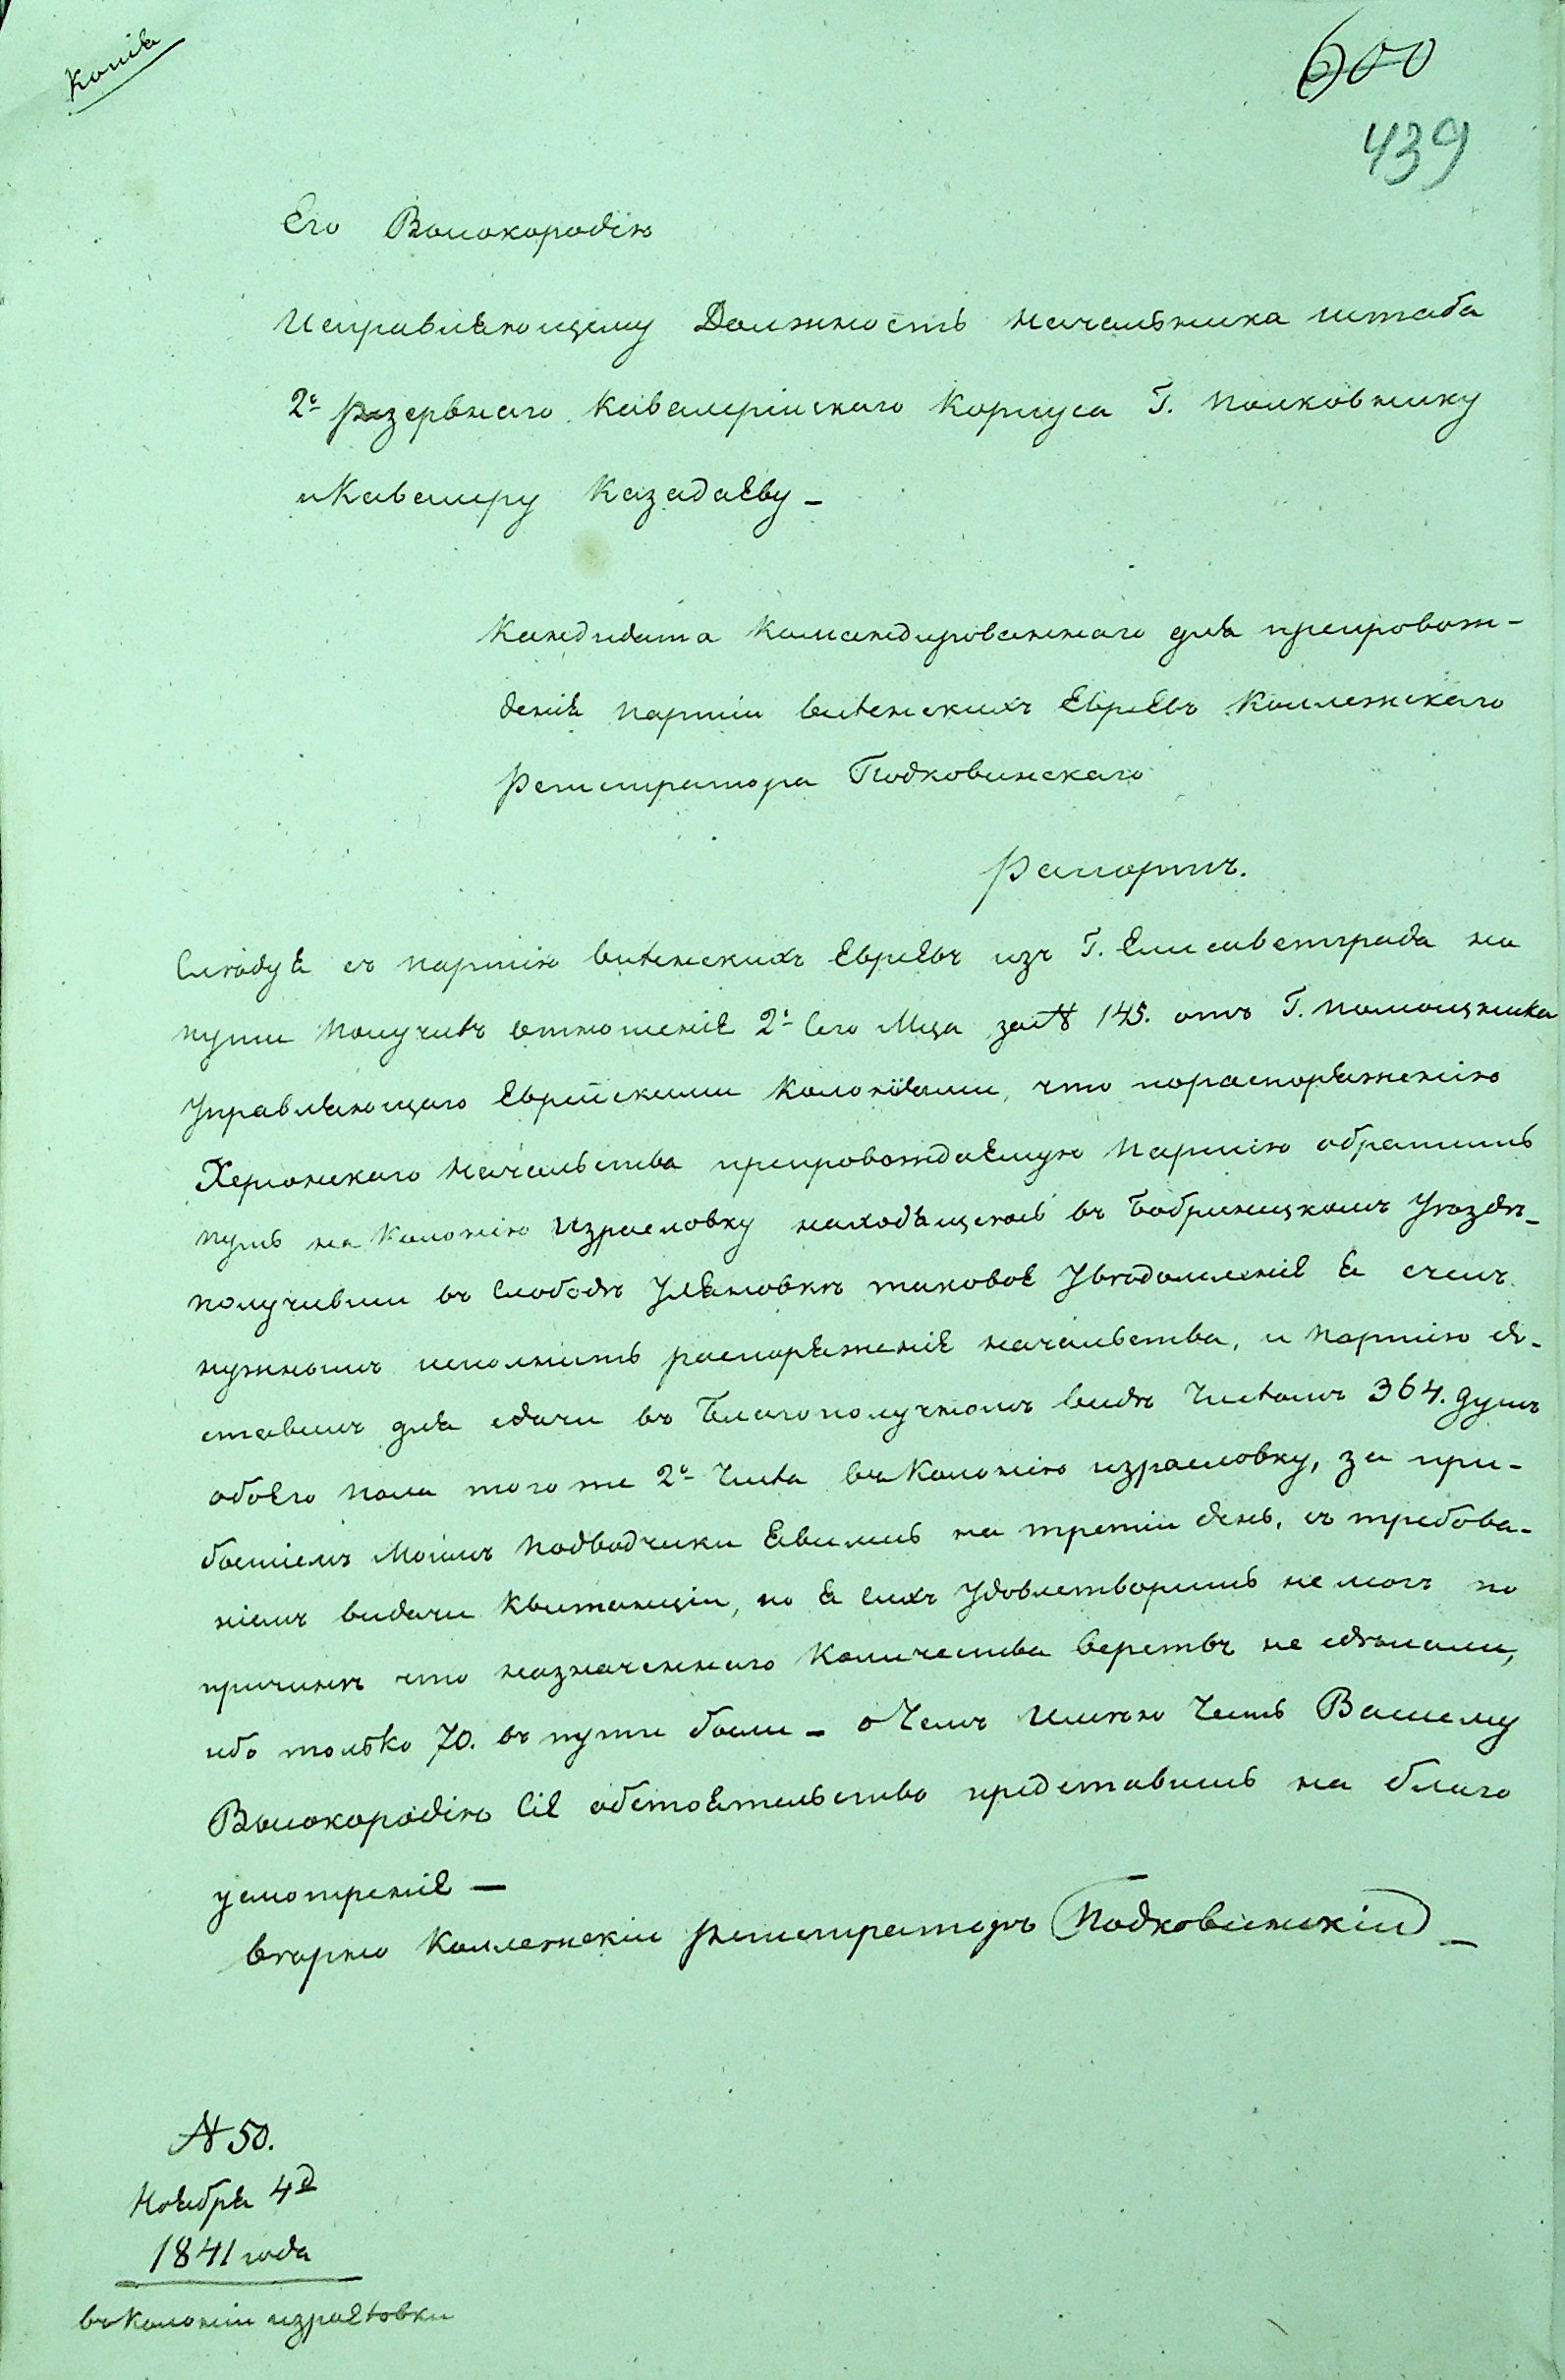 Копія
600
439
Его Высокородію
Исправляющему Должность Начальника штаба
2го резервнаго Кавалерійскаго Корпуса Г. Полковнику
и Кавалеру Казадаеву –
Кандидата Командированнаго для препровож-
денія партіи виленскихъ Евреевъ Коллежскаго
Регистратора Подковинскаго
Рапортъ.
Слѣдуя съ партію виленскихъ Евреевъ изъ Г. Елисаветграда на
пути Получивъ отношеніе 2го Сего Мца за № 145. отъ Г. Помощника
Управляющаго Еврейскими Колоніями, что пораспоряженію
Херсонскаго Начальства препровождаемую Партію обратить
путь на Колонію Израеловку находящеюсь въ Бобринецкомъ Уѣздѣ –
получивши въ Слободѣ Уляновкѣ таковое Увѣдомленіе я счелъ
нужномъ исполнить распоряженіе начальства, и Партію до-
ставилъ для сдачи въ Благополучномъ видѣ Числомъ 364. душъ
обоего пола того же 2го Числа въ Колонію израеловку, за при-
бытіемъ Моимъ Подводчики Явились на третіи день, съ требова-
ніемъ видачи Квитанціи, но я сихъ Удовлетворить не могъ по
причинѣ что назначеннаго Количества верстъ не сдѣлали,
ибо только 70. въ пути были – о Чемъ Имѣю Честь Вашему
Высокородію Сіе обстоятельство представить на благо
усмотреніе –
вѣрно Коллежскіи регистраторъ Подковинскіи –
№ 50.
Ноября 4д
1841 года
въ Колоніи израеловки